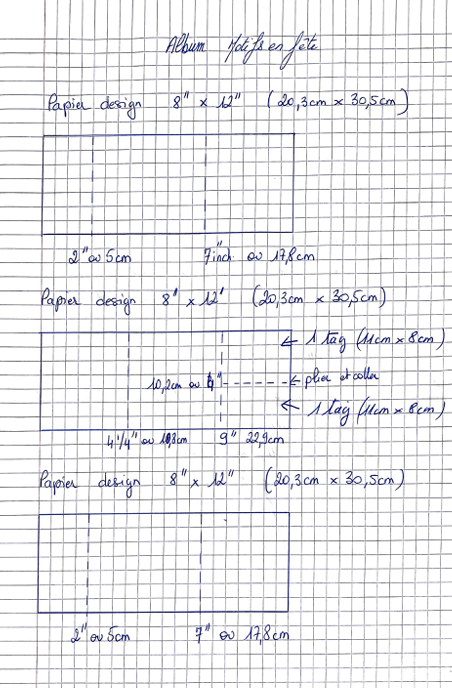 Album Motifs en fête
Papier design 8" x 12" (20,3cm x 30,5cm)
2" ou 5cm 7"inch ou 17,8cm
Papier design 8" x 12" (20,3cm x 30,5cm)
← 1 tag (11cm x 8cm)
10,2cm ou 4" ← plier et coller
← 1 tag (11cm x 8cm)
4 1/4" ou 10,8cm 9" 22,9cm
Papier design 8" x 12" (20,3cm x 30,5cm)
2" ou 5cm 7" ou 17,8cm